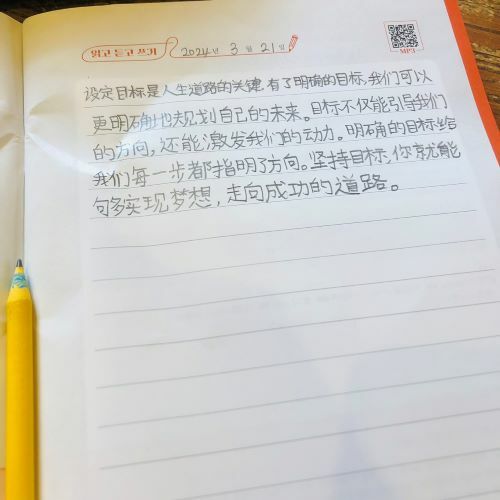 읽고 듣고 쓰기 2024년 3월 21일 MP3
设定目标是人生道路的关键.有了明确的目标,我们可以
更明确地规划自己的未来。目标不仅能引导我们
的方向,还能激发我们的动力。明确的目标给
我们每一步都指明了方向。坚持目标,你就能
够实现梦想,走向成功的道路。